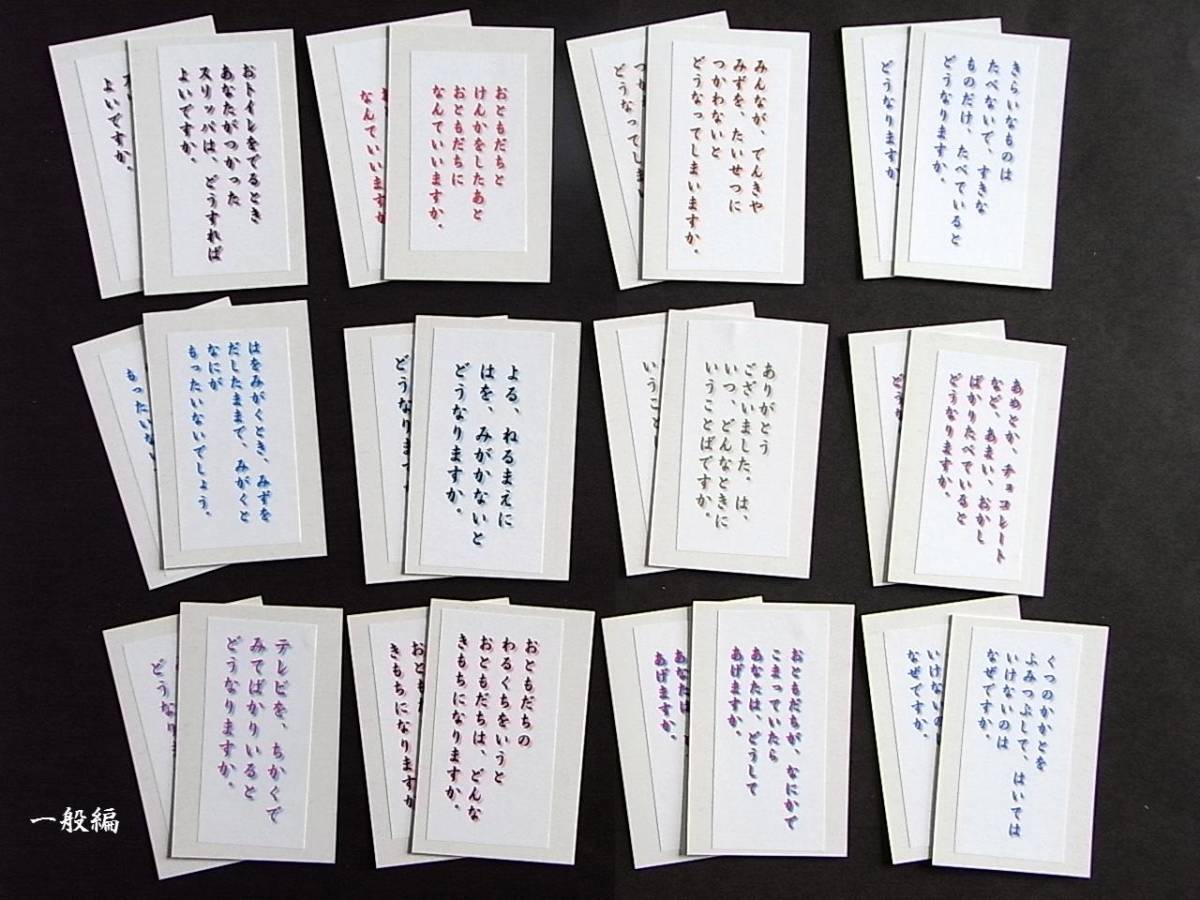 おトイレをでるとき
あなたがつかった
スリッパは、どうすれば
よいですか。
よいですか。
おともだちと
けんかをしたあと
おともだちに
なんていいますか。
なんていいますか
みんなが、でんきや
みずを、たいせつに
つかわないと
どうなってしまいますか。
どうなってしまい
きらいなものは
たべないで、すきな
ものだけ、たべていると
どうなりますか。
どうなりますか
はをみがくとき、みずを
だしたままで、みがくと
なにが
もったいないでしょう。
もったいない
よる、ねるまえに
はを、みがかないと
どうなりますか。
どうなります
ありがとう
ございました。は、
いつ、どんなときに
いうことばですか。
いうこと
あめとか、チョコレート
など、あまい、おかし
ばかりたべていると
どうなりますか。
テレビを、ちかくで
みてばかりいると
どうなりますか。
どうなりま
おともだちの
わるくちをいうと
おともだちは、どんな
きもちになりますか。
おともだ
きもちになりますか
おともだちが、なにかで
こまっていたら
あなたは、どうして
あげますか。
あなたは、
あげますか。
くつのかかとを
ふみつぶして、はいては
いけないのは
なぜですか。
いけないの
なぜですか。
一般編